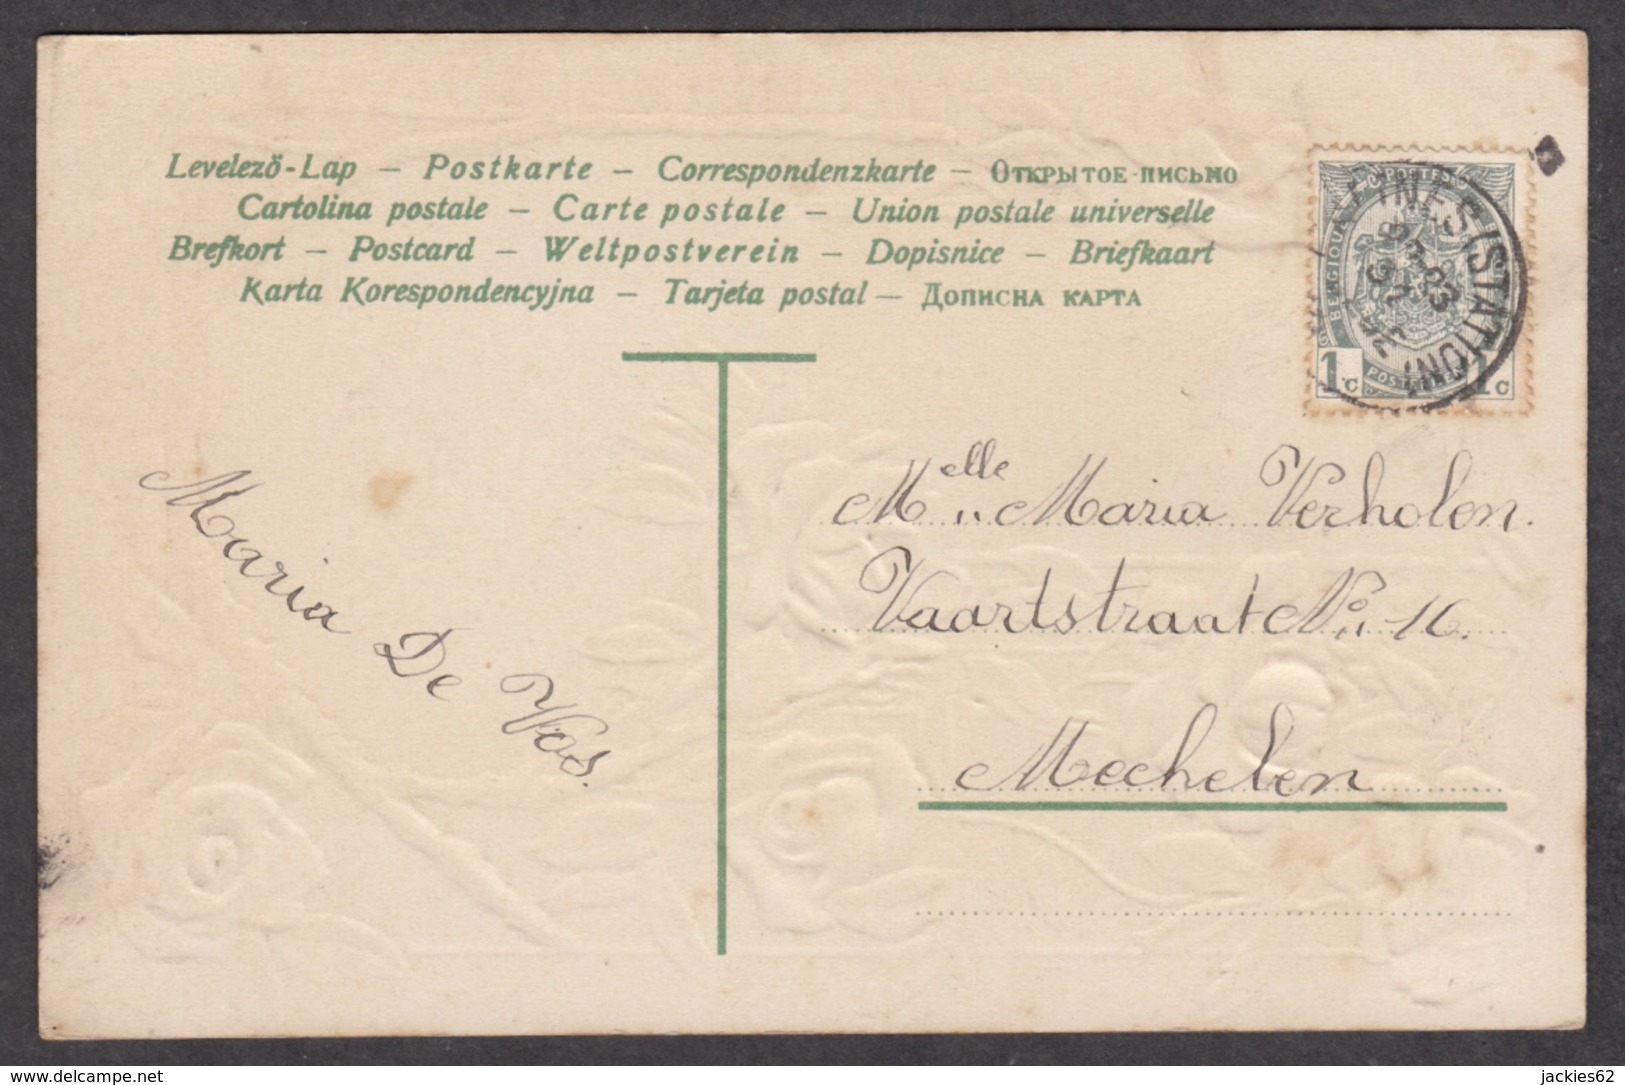 Levelező-Lap – Postkarte – Correspondenzkarte – Открытое письмо
Cartolina postale – Carte postale – Union postale universelle
Brefkort – Postcard – Weltpostverein – Dopisnice – Briefkaart
Karta Korespondencyjna – Tarjeta postal – Дописна карта
BELGIQUE
1 c 1 c
(STATION)
Melle Maria Verholen.
Vaartstraat No 16.
Mechelen
Maria De Vos.
https://www.delcampe.net
jackies62